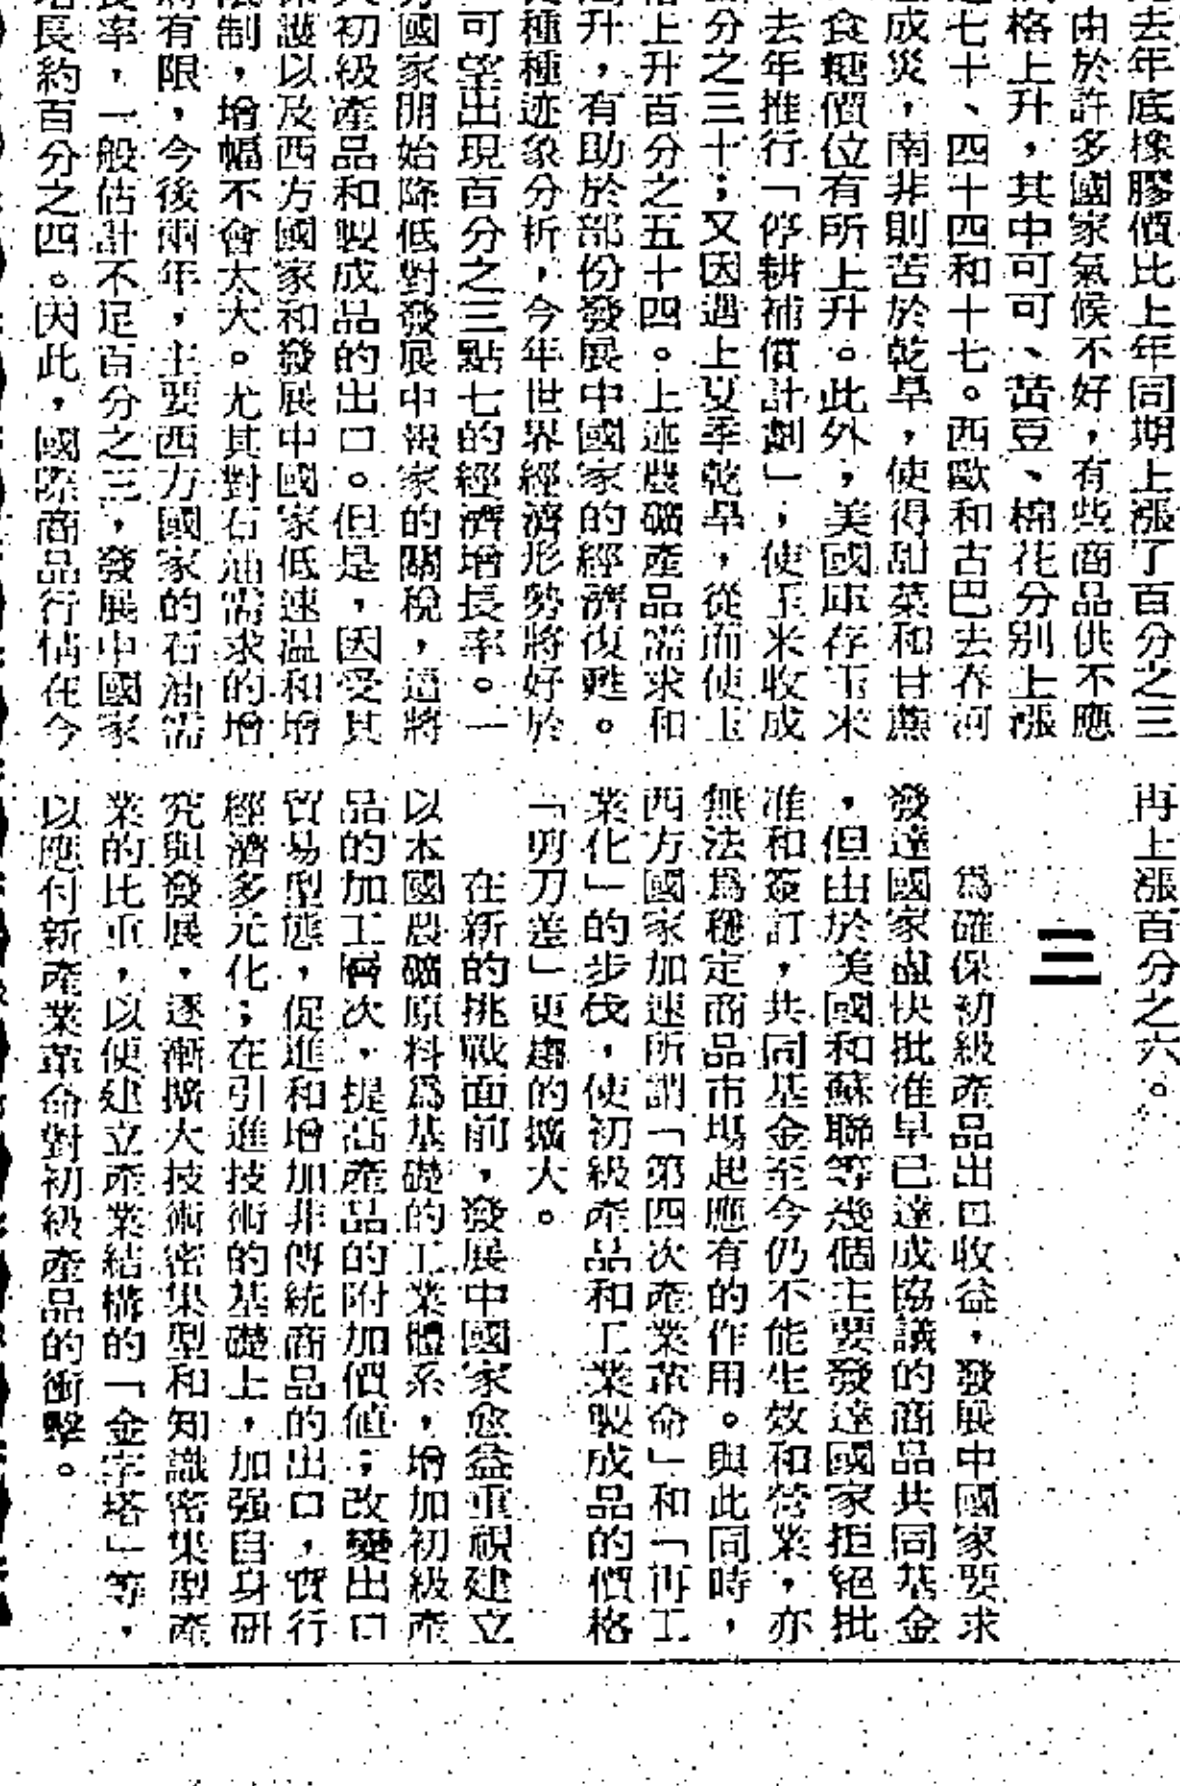 去年底橡膠價比上年同期上漲了百分之三
由於許多國家氣候不好，有些商品供不應
格上升，其中可可、苦豆、棉花分別上漲
七十、四十四和十七。西歐和古巴去春河
成災，南非則苦於乾旱，使得甜菜和甘蔗
食糖價位有所上升。此外，美國庫存玉米
去年推行「停耕補償計劃」，使玉米收成
分之三十；又因遇上夏季乾旱，從而使玉
上升百分之五十四。上述農礦產品需求和
升，有助於部份發展中國家的經濟復甦。
種種迹象分析，今年世界經濟形勢將好於
可望出現百分之三點七的經濟增長率。一
國家開始降低對發展中國家的關稅，這將
初級產品和製成品的出口。但是，因受其
護以及西方國家和發展中國家低速溫和增
制，增幅不會太大。尤其對石油需求的增
有限，今後兩年，主要西方國家的石油需
率，一般估計不足百分之三，發展中國家
長約百分之四。因此，國際商品行情在今
再上漲百分之六。
三
爲確保初級產品出口收益，發展中國家要求
發達國家盡快批准早已達成協議的商品共同基金
，但由於美國和蘇聯等幾個主要發達國家拒絕批
准和簽訂，共同基金至今仍不能生效和營業，亦
無法爲穩定商品市場起應有的作用。與此同時，
西方國家加速所謂「第四次產業革命」和「再工
業化」的步伐，使初級產品和工業製成品的價格
「剪刀差」更趨的擴大。
在新的挑戰面前，發展中國家愈益重視建立
以本國農礦原料爲基礎的工業體系，增加初級產
品的加工層次，提高產品的附加價值；改變出口
貿易型態，促進和增加非傳統商品的出口，實行
經濟多元化；在引進技術的基礎上，加强自身研
究與發展，逐漸擴大技術密集型和知識密集型產
業的比重，以便建立產業結構的「金字塔」等，
以應付新產業革命對初級產品的衝擊。